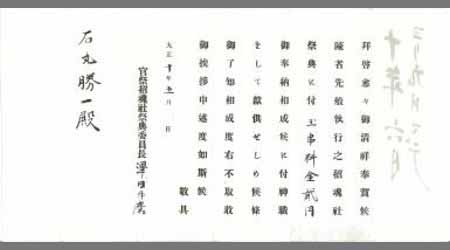 拜啓愈々御清祥奉賀候
陳者先般執行之招魂社
祭典に付玉串料金貳円
御奉納相成候に付神職
をして獻供せしめ候條
御了知相成度右不取敢
御挨拶申述度如斯候
敬具
大正十年五月 日
官祭招魂社祭典委員長
石丸勝一殿